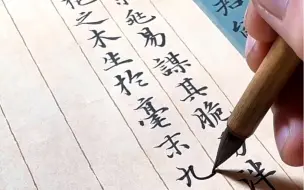 兆易謀其脆易泮
抱之木生於毫末九